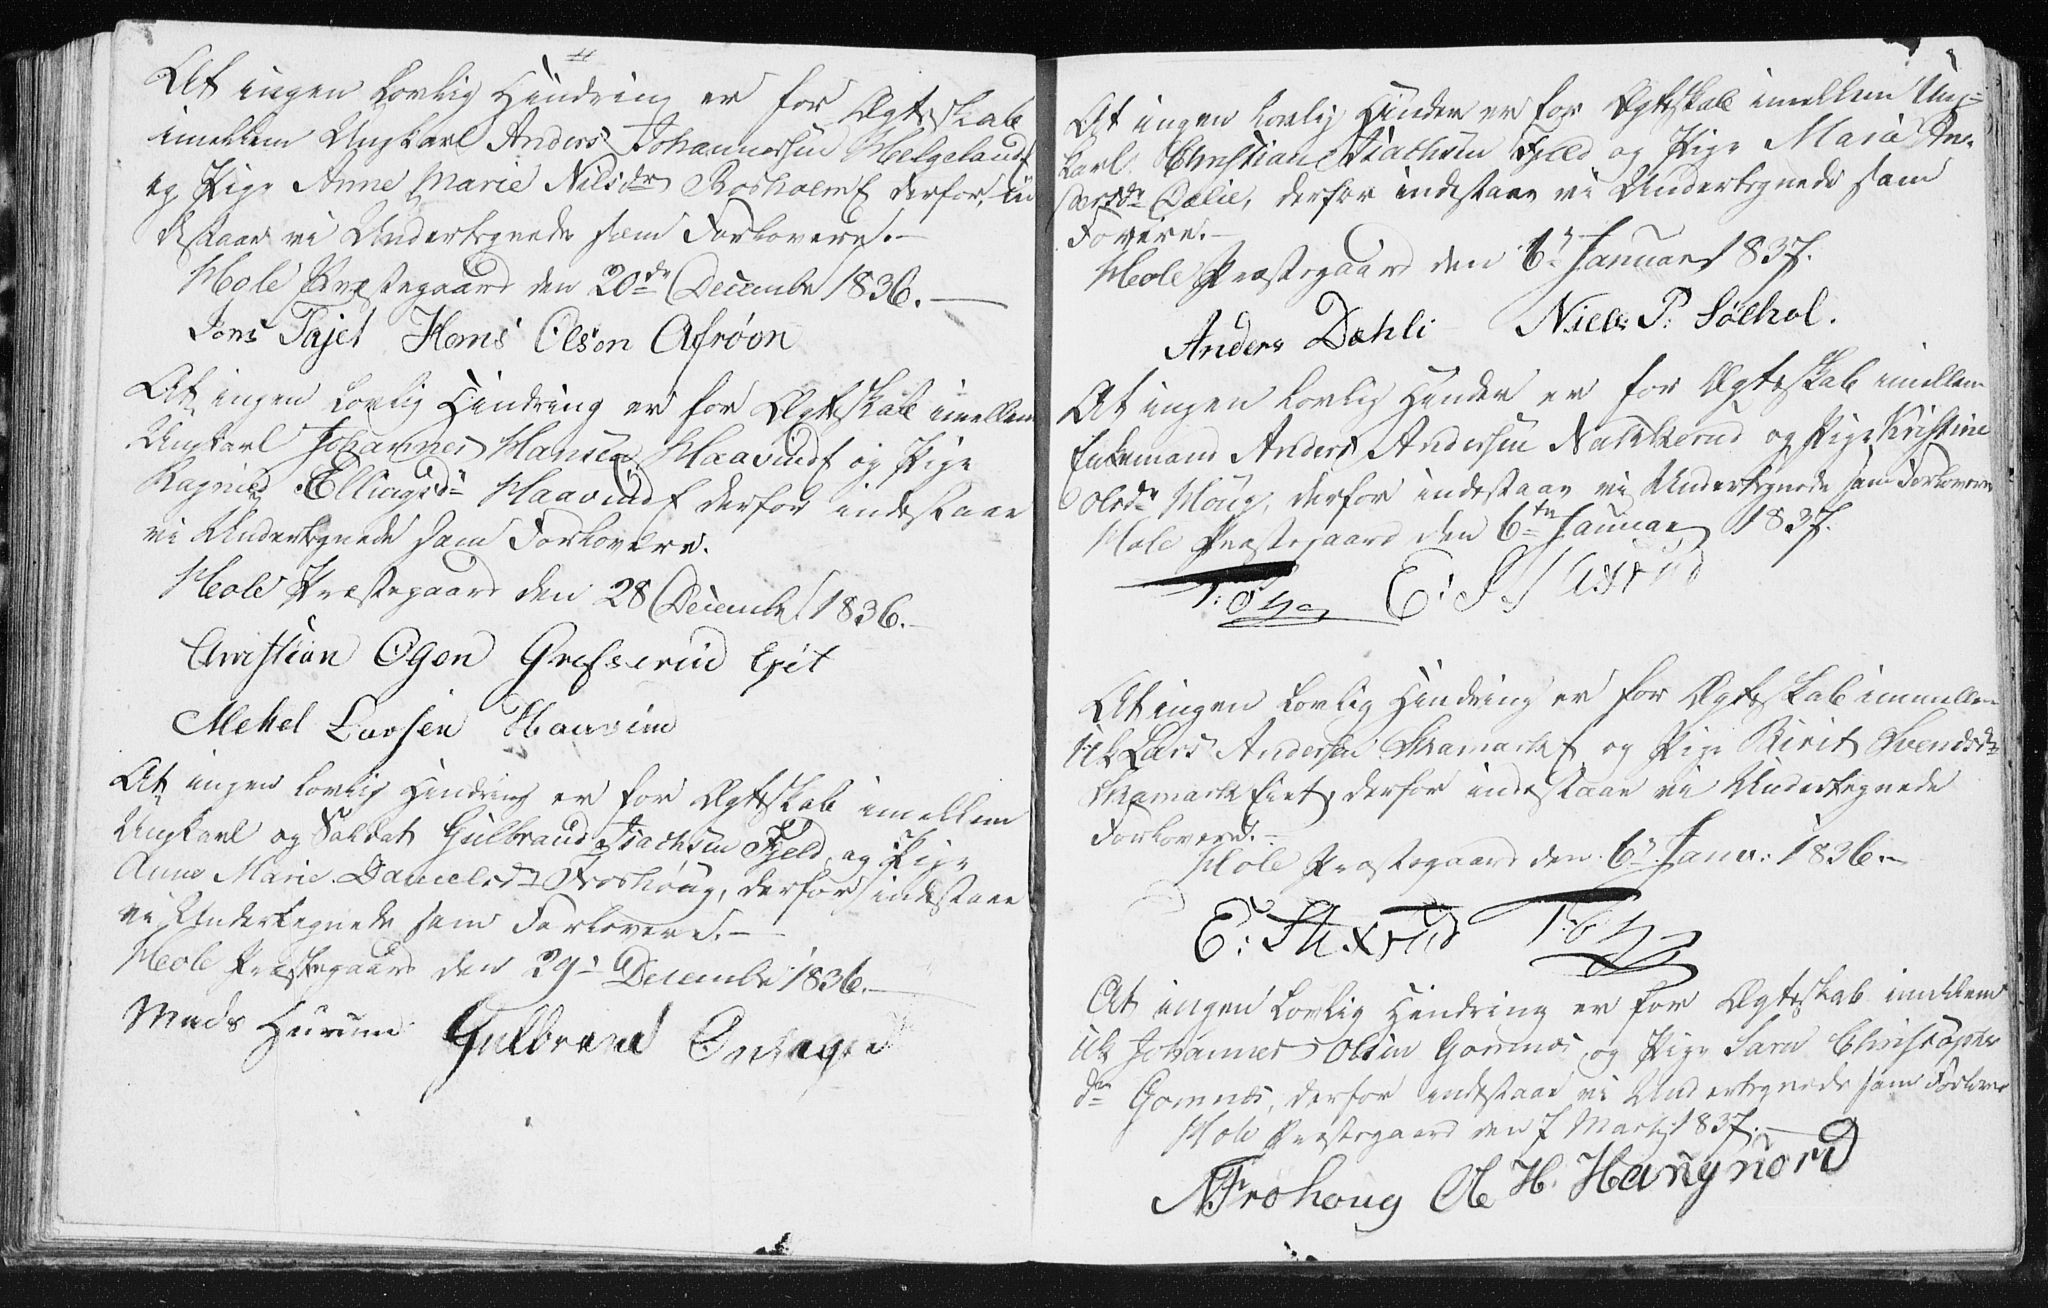 At ingen Lovlig Hindring er for Ægteskab
imellem Ungkarl Anders Johannessen Helgeland
og Pige Anne Marie Nilsdr derfor in
destaar vi Undertegnede som Forlovere.-
Hole Præstegaard den 20de December 1836.
Hans Olsen
At ingen Lovlig Hindring er for Ægteskab imellem
Ungkarl Johannes Hansen og Pige
Ellingsdr derfor indestaar
vi Undertegnede som Forlovere.
Hole Præstegaard den 28 December 1836.-
Christian Ogen Grefserud Eiet
Mekel Larsen
At ingen Lovlig Hindring er for Ægteskab imellem
Ungkarl og Soldat Gulbrand Isachsen Fjeld, og Pige
Anne Marie Danielsdr Froshoug, derfor indestaar
vi Undertegnede som Forlovere.-
Hole Præstegaard den 29 December 1836.-
Mads Hurum Gulbrand
At ingen Lovlig Hinder er for Ægteskab imellem Ung-
karl Christian Isachsen Fjeld og Pige Maria An-
dersdr Dælie, derfor indestaar vi Undertegnede som
Forvere.-
Hole Præstegaard den 6 Januar 1837.
Anders Dæhli Niels P: Sølhol.
At ingen Lovlig Hinder er for Ægteskab imellem
Enkemand Anders Andersen Nakkerud og Pige Kristine
Olsdr Houg, derfor indestaar vi Undertegnede som Forlovere
Hole Præstegaard den 6te Januar 1837.
E: Stixrud
At ingen Lovlig Hindring er for Ægteskab immellem
Uk Lars Andersen og Pige Birit Svendsdr
Eiet, derfor indestaar vi Undertegnede
Forlovere.-
Hole Præstegaard den 6 Janu: 1836.-
E: Stixrud
At ingen Lovlig Hindring er for Ægteskab imellem
Uk Johannes Olsen Gomnæs og Pige Sara Christopher
dr Gomnæs, derfor indestaar vi Undertegnede som Forlovere
Hole Præstegaard den 7 Marts 1837.-
Frohoug Ole H. Hangnord